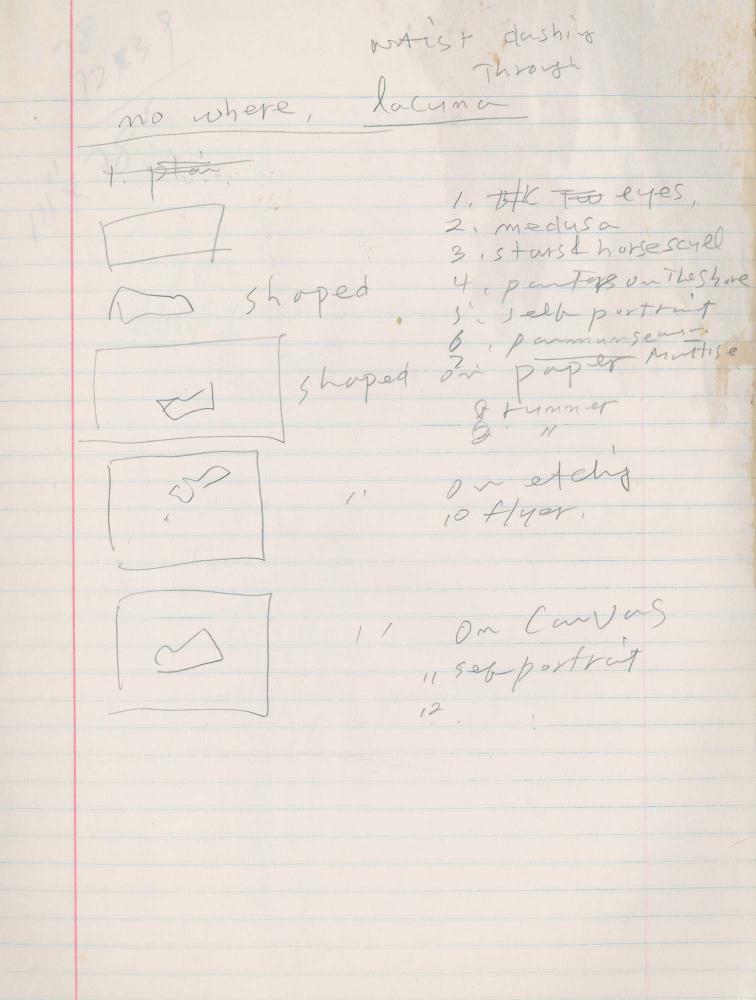 dashing
Through
no where, lacuna
1. plan
1. eyes,
2. medusa
3. stars & horsescull
shaped
4. on The shore
5. self portrait
6.
shaped on paper
7. Mattise
8 runner
9 "
" on etchig
10 flyer.
" on Canvas
11 self portrait
12